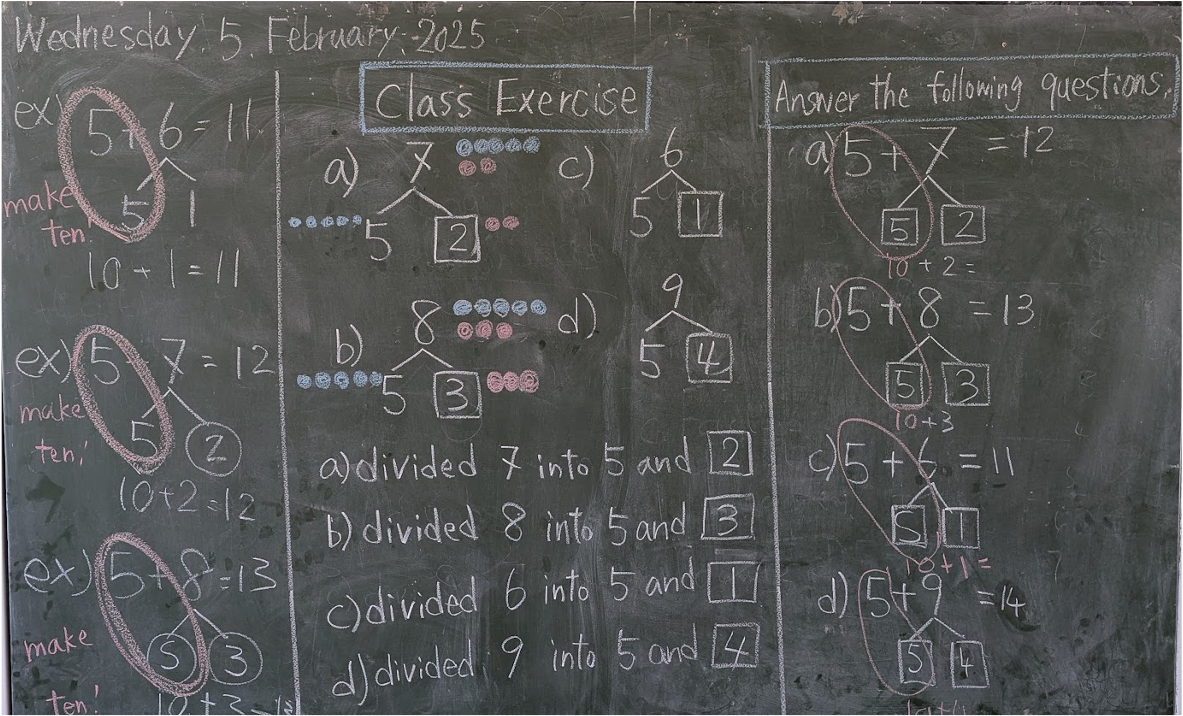 Wednesday, 5 February, 2025
ex) 5 + 6 = 11
5 1
make
ten!
10 + 1 = 11
ex) 5 + 7 = 12
make
5 2
ten!
10+2=12
ex) 5+8=13
make
5 3
ten!
10+3=1
Class Exercise
a) 7
5 2
b) 8
5 3
c) 6
5 1
d) 9
5 4
a) divided 7 into 5 and 2
b) divided 8 into 5 and 3
c) divided 6 into 5 and 1
d) divided 9 into 5 and 4
Answer the following questions.
a) 5 + 7 = 12
5 2
10 + 2 =
b) 5 + 8 = 13
5 3
10+3
c) 5 + 6 = 11
5 1
10+1=
d) 5+9 =14
5 4
10+4